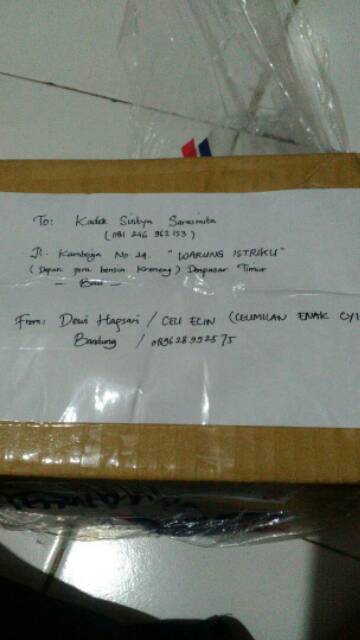 To: Kadek Sintya
(081 246 962 153)
Jl. Kamboja No. 24. "WARUNG ISTRIKU"
(Depan pom bensin Kreneng) Denpasar Timur
- Bali -
From: Dewi Hapsari / CELI ECIN (CEUMILAN ENAK
Bandung / 089628992575